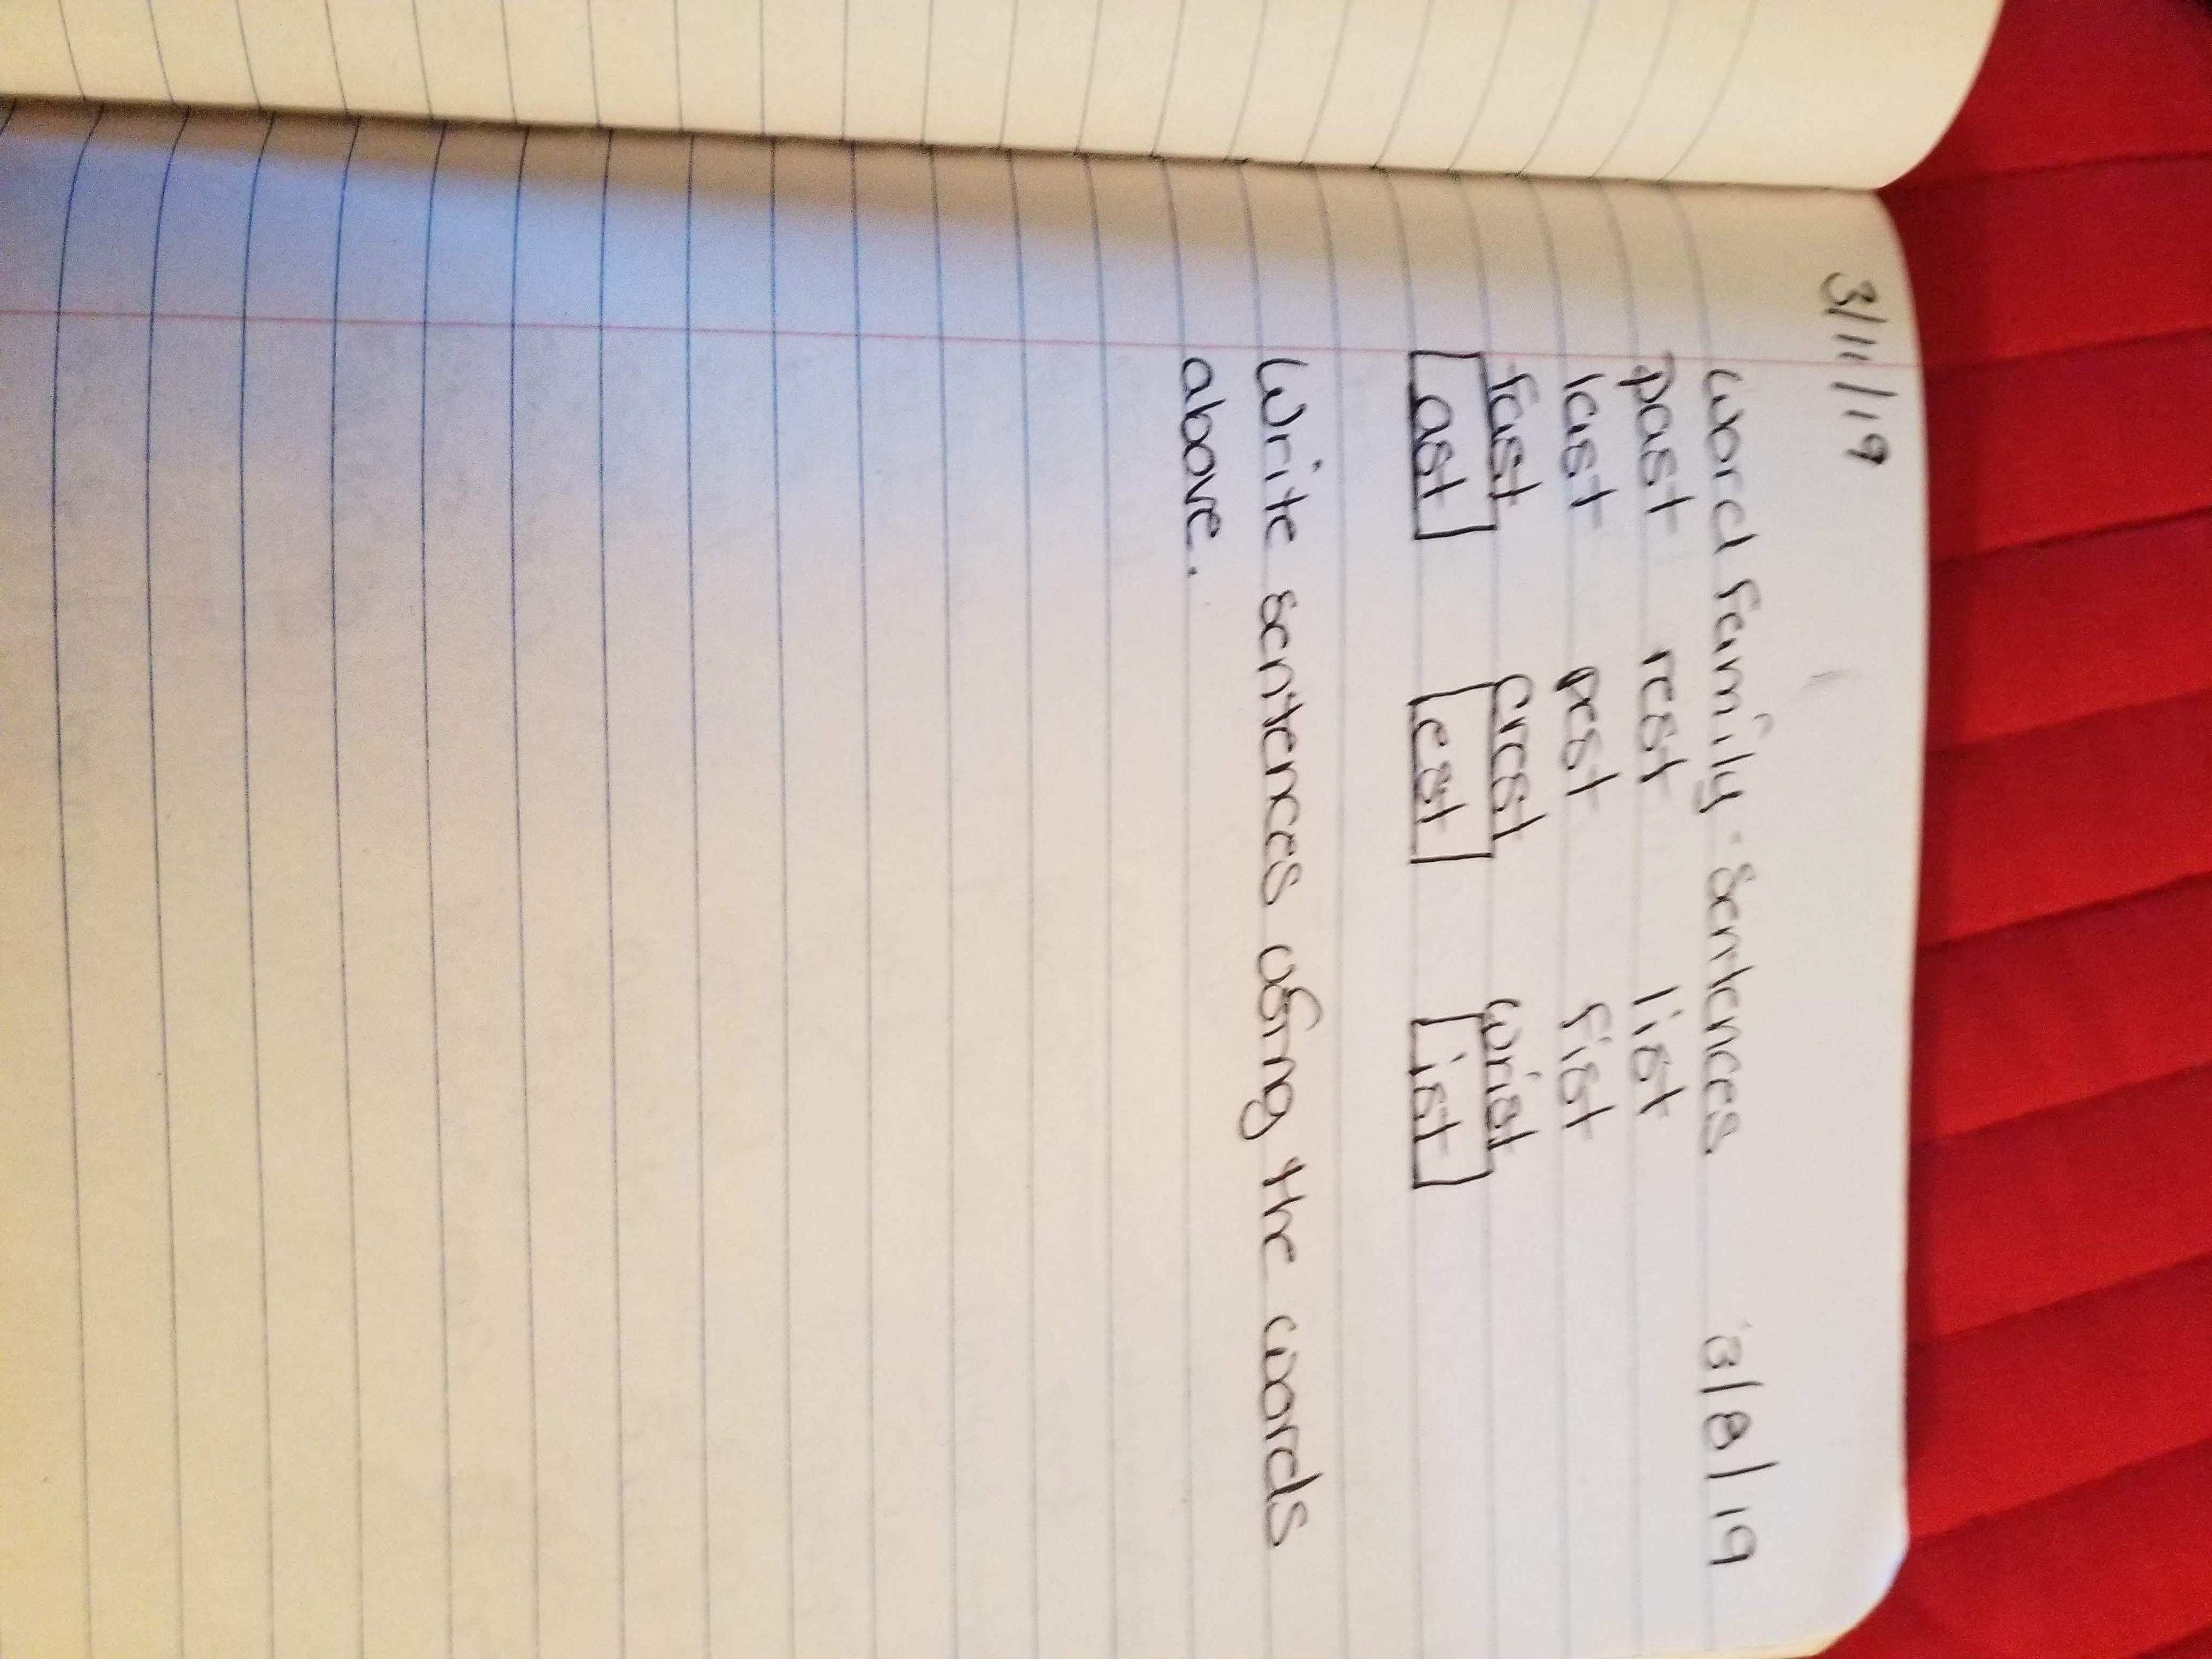 3/11/19
Word family - Sentences 3/8/19
past rest list
last pest fist
fast crest wrist
ast est ist
Write sentences using the words
above.